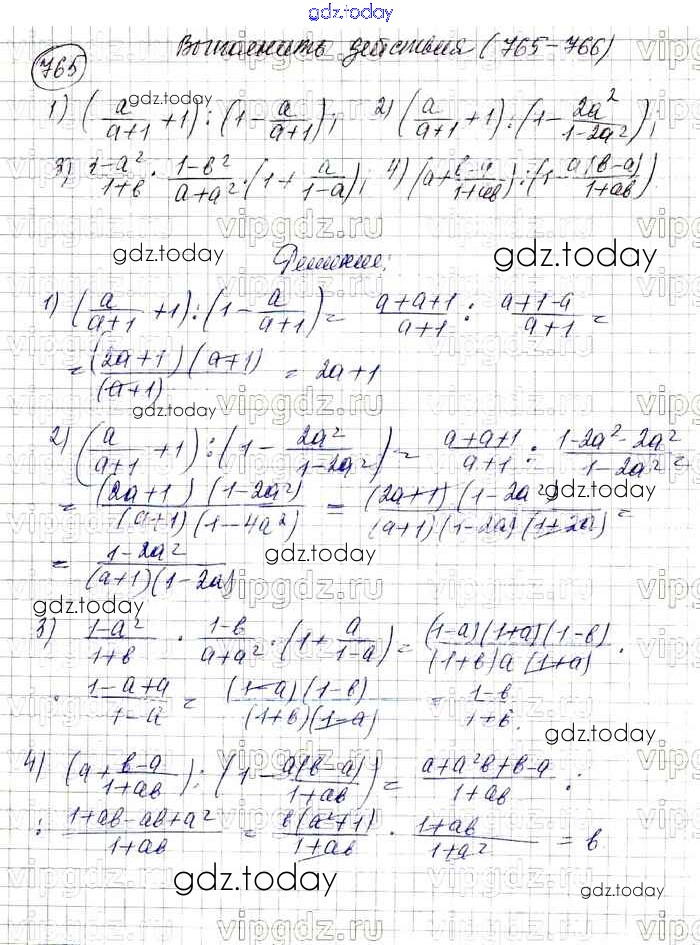 gdz.today
765 Выполнить действия (765-766)
1) (a/(a+1) +1) : (1 - a/(a+1)); 2) (a/(a+1) +1) : (1 - 2a²/(1-2a²));
3) (1-a²)/(1+b) · (1-b²)/(a+a²) · (1 + a/(1-a)); 4) (a + (b-a)/(1+ab)) : (1 - a(b-a)/(1+ab))
gdz.today
Решение:
1) (a/(a+1) +1) : (1 - a/(a+1)) = (a+a+1)/(a+1) : (a+1-a)/(a+1) =
= (2a+1)(a+1)/(a+1) = 2a+1
gdz.today
2) (a/(a+1) +1) : (1 - 2a²/(1-2a²)) = (a+a+1)/(a+1) : (1-2a²-2a²)/(1-2a²) =
= (2a+1)(1-2a²)/((a+1)(1-4a²)) = (2a+1)(1-2a²)/((a+1)(1-2a)(1+2a)) =
= (1-2a²)/((a+1)(1-2a))
gdz.today
3) (1-a²)/(1+b) · (1-b)/(a+a²) · (1 + a/(1-a)) = (1-a)(1+a)(1-b)/((1+b)a(1+a)) ·
· (1-a+a)/(1-a) = (1-a)(1-b)/((1+b)(1-a)) = (1-b)/(1+b).
gdz.today
4) (a + (b-a)/(1+ab)) : (1 - a(b-a)/(1+ab)) = (a+a²b+b-a)/(1+ab) :
: (1+ab-ab+a²)/(1+ab) = b(a²+1)/(1+ab) · (1+ab)/(1+a²) = b
gdz.today
vipgdz.ru